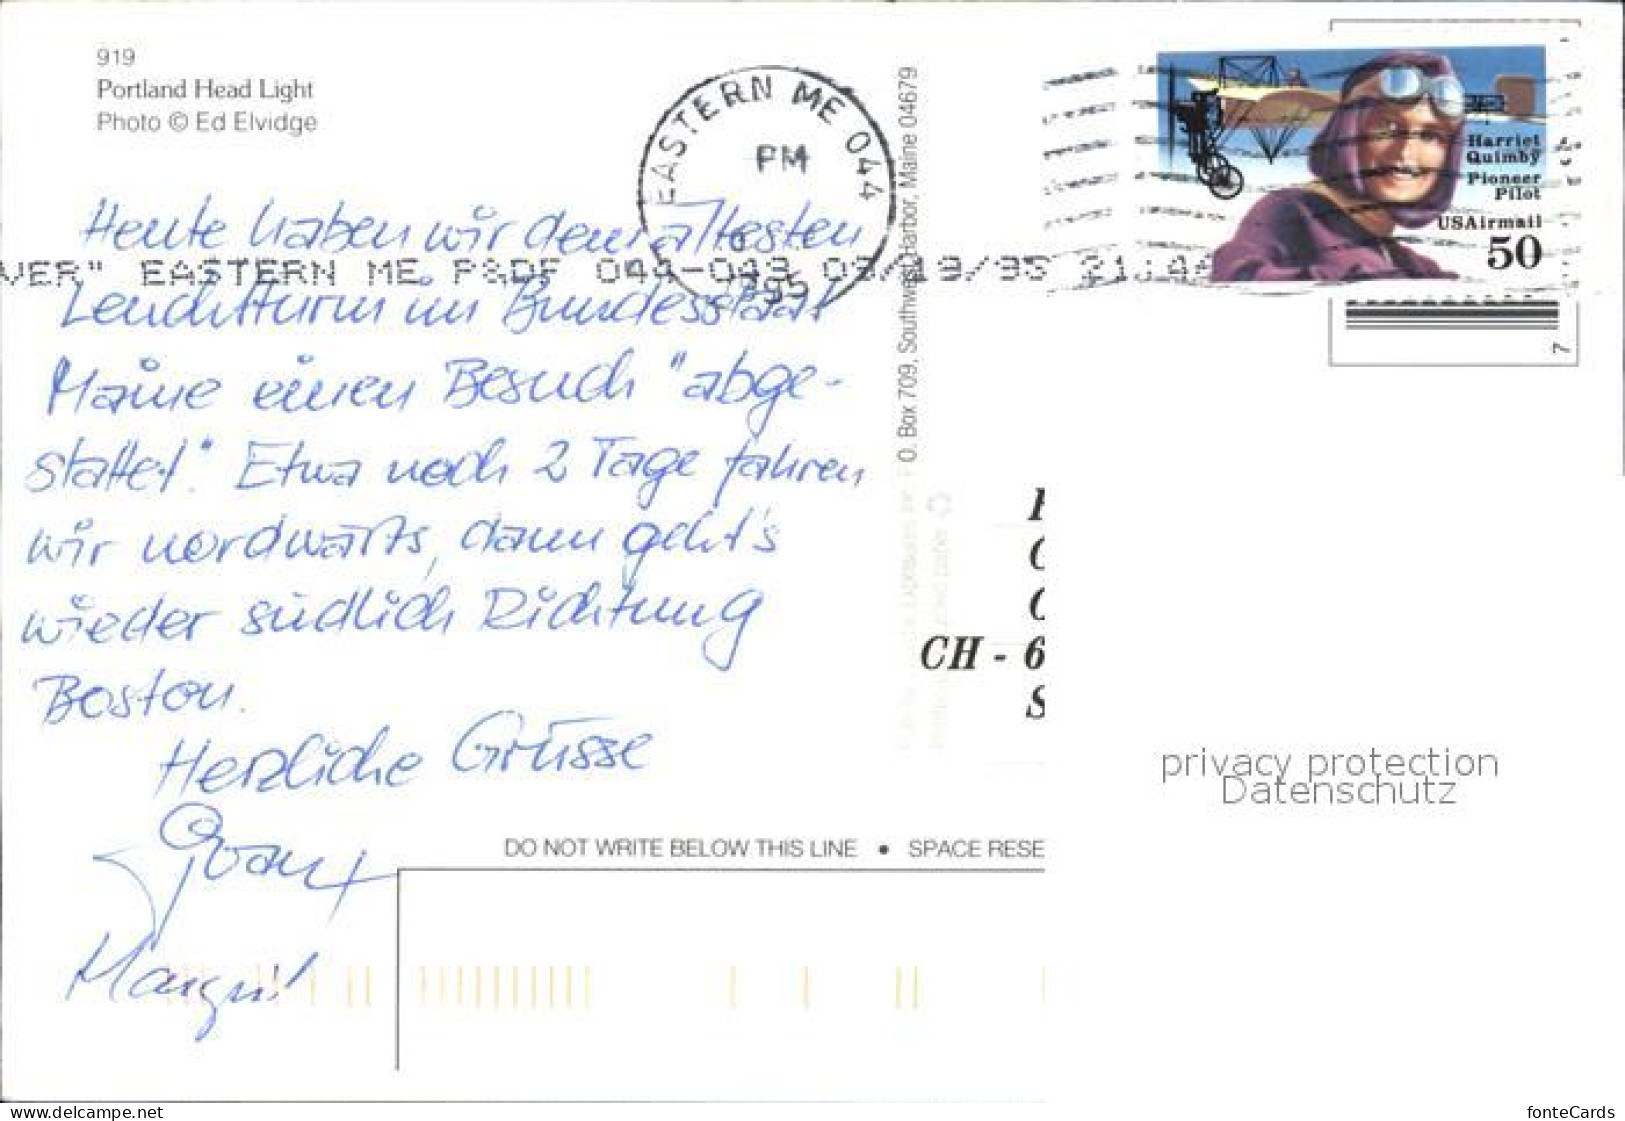 919
Portland Head Light
Photo © Ed Elvidge
EASTERN ME 044
PM
1995
VER" EASTERN ME P&DF 044-049 09/19/95 21:44
Harriet
Quimby
Pioneer
Pilot
USAirmail
50
7
Heute haben wir dem ältesten
Leuchtturm im Bundesstaat
Maine einen Besuch "abge-
stattet." Etwa noch 2 Tage fahren
wir nordwärts, dann geht's
wieder südlich Richtung
Boston.
Herzliche Grüsse
Margrit
O. Box 709, Southwest Harbor, Maine 04679
CH - 6
S
privacy protection
Datenschutz
DO NOT WRITE BELOW THIS LINE • SPACE RESE
www.delcampe.net
fonteCards